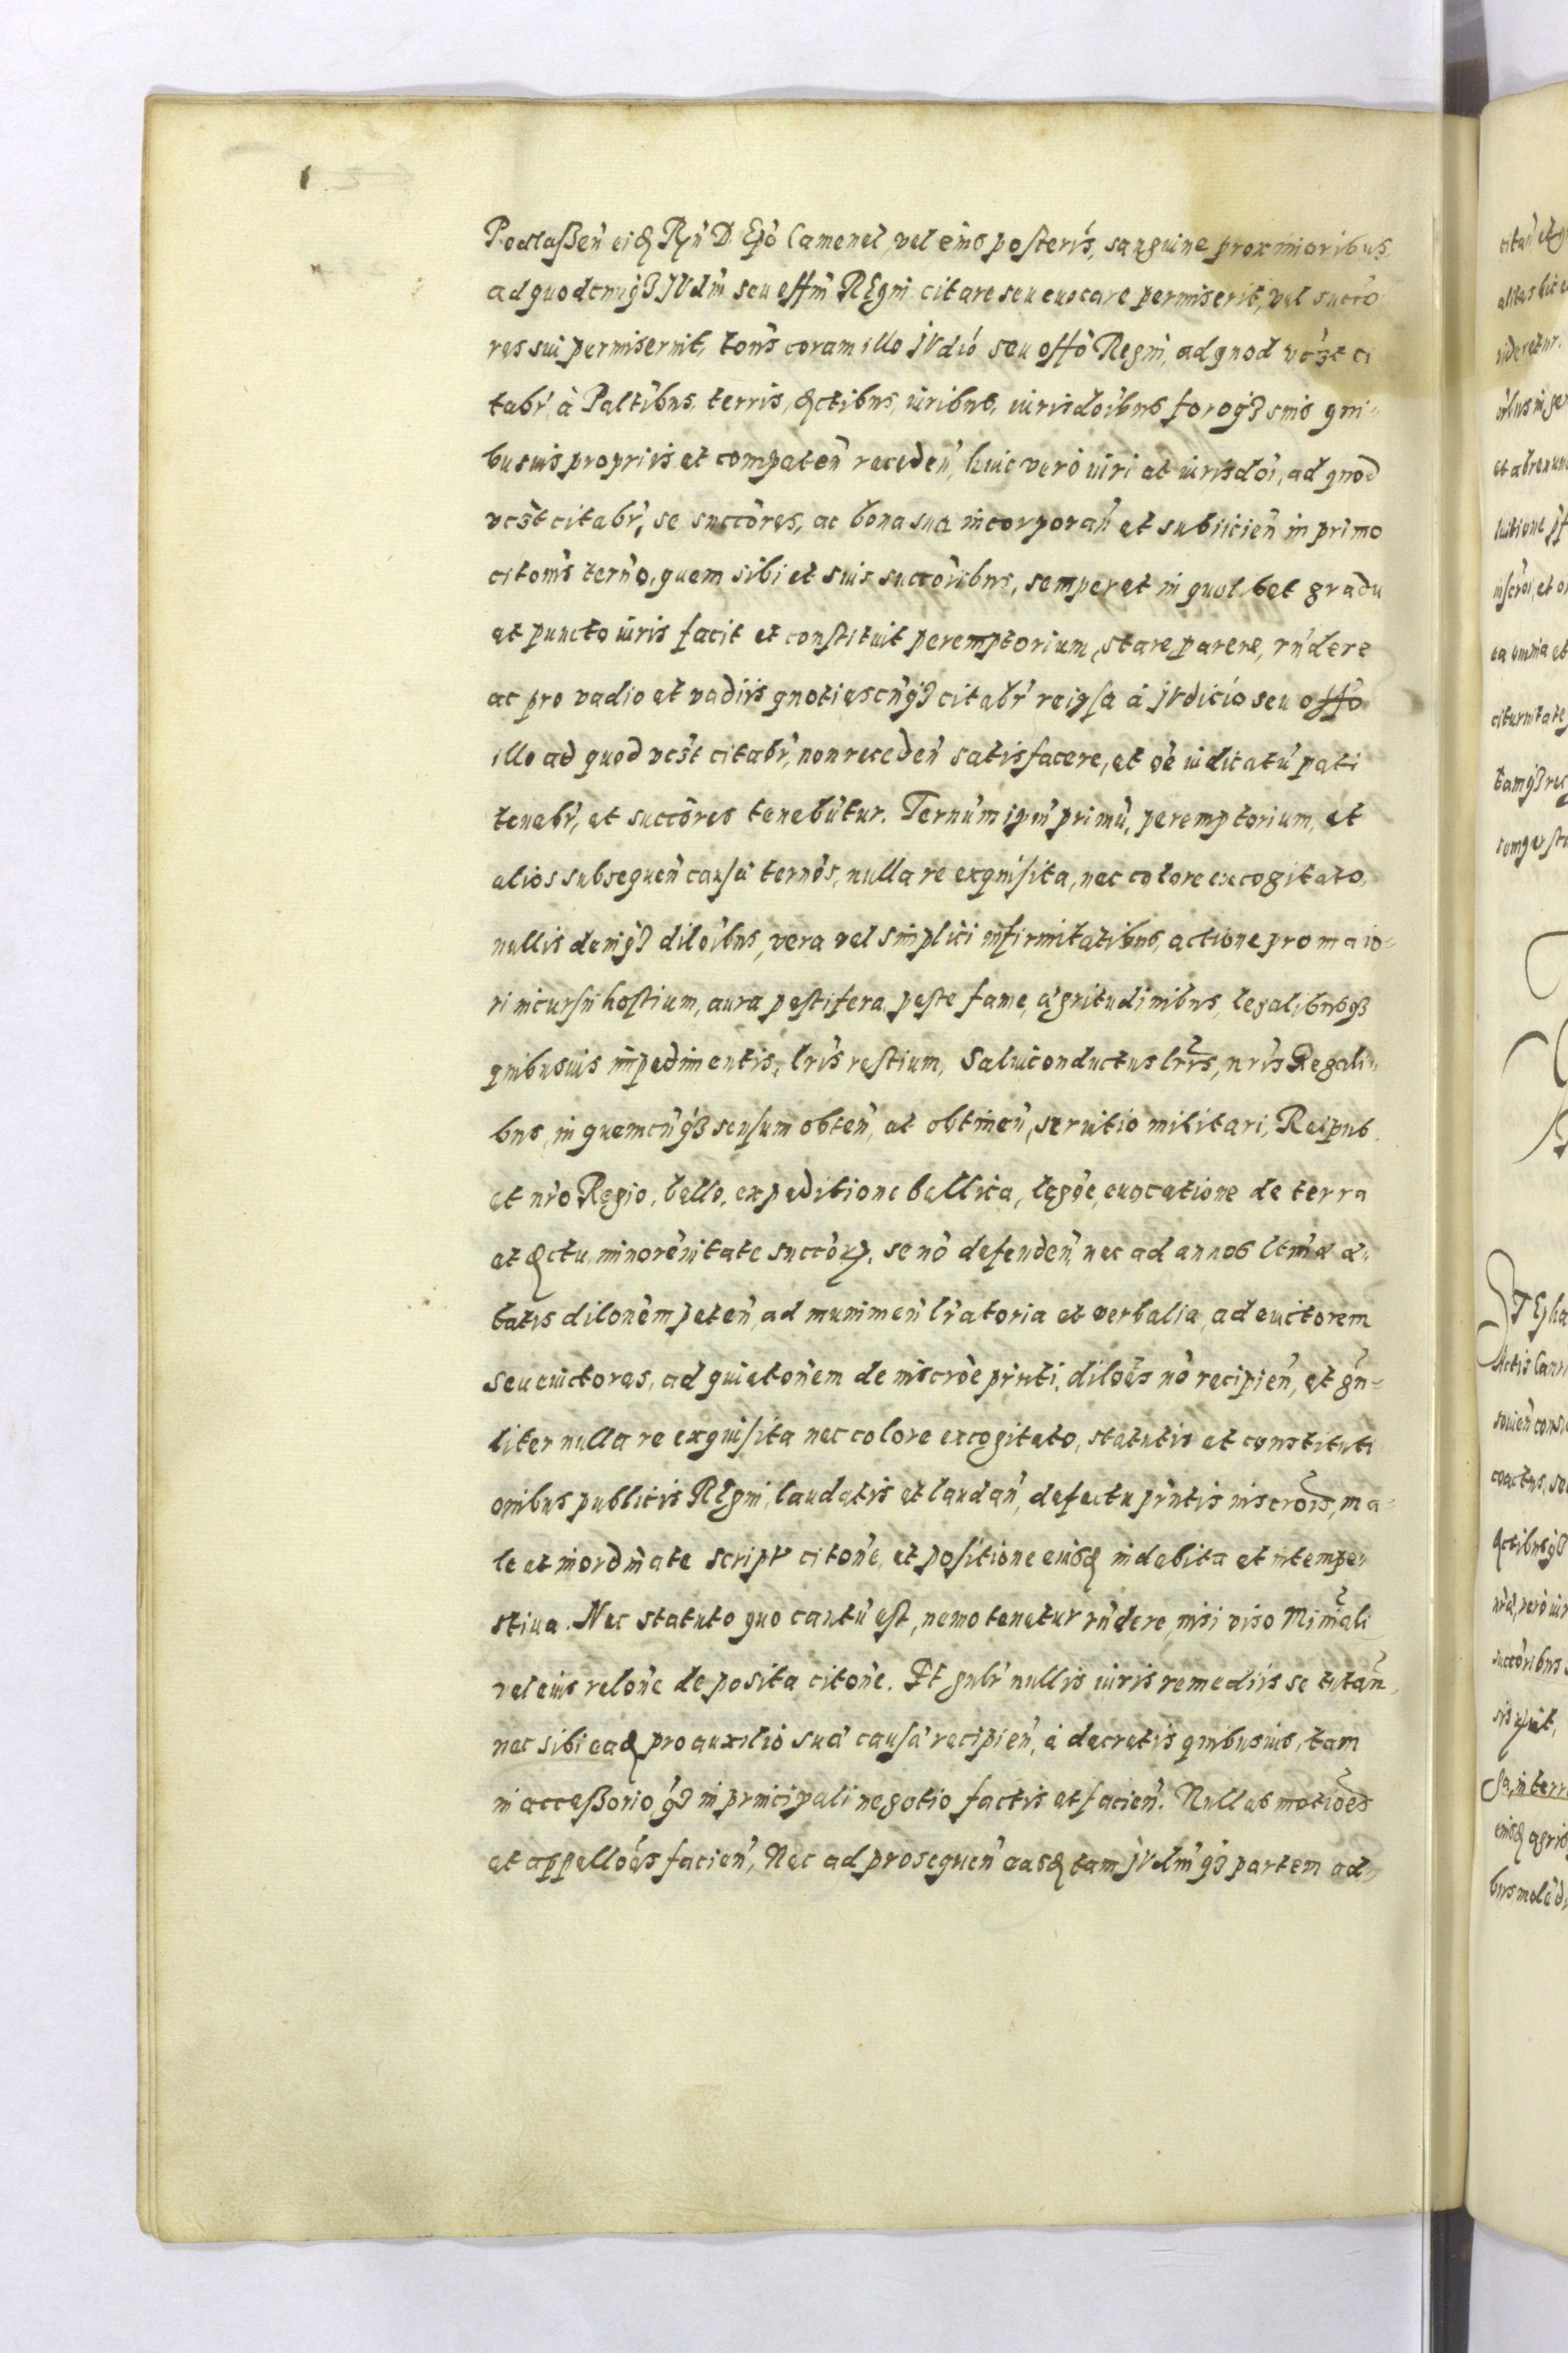 Podlaßen̄ eidē Rn̄ D Ep̄o Camenel, vel eius posteris, sanguine proximioribus
ad quodcunq3 JVdm̄ seu offm̄ REgni citare seu euocare permiserit, vel succo
res sui permiserint, ton̄s coram illo jVdiō seu offō Regni, ad quod vc̄3t ci
tabr̄, à Paltībus, terris, dctibus, iuribus, iurisdōibus foroq3 suis qui-
busuis propriis et competen̄ receden̄, huic verò iuri at iurisdōi, ad quod
vc̄3t citabr̄, se succōres, ac bona sua incorporan̄ et subiicien̄ in primo
citonīs tern̄o, quem sibi et suis succōribus, semper et in quolibet gradu
et puncto iuris facit et constituit peremptorium, stare, parere, rn̄dere
ac pro vadio et vadiis quotiescn̄q3 citabr̄ reipsa à jVdicio seu offō
illo ad quod vc̄3t citabr̄, non receden̄ satisfacere, et oē iudicatū pati
tenebr̄, et succōres tenebūtur. Tern̄um ipm̄ primū, peremptorium, et
alios subsequen̄ causæ tern̄os, nulla re exquisita, nec colore excogitato,
nullis deniq3 dilōibus, vera vel simplici infirmitatibus, actione pro maio-
ri incursu hostium, aura pestifera, peste fame, ægritudinibus, legalibusq3
quibusuis impedimentis, lrīs restium, Saluiconductus lrīs, nrīs Regali-
bus, in quemcūq3 sensum obten̄, et obtinen̄, seruitio militari, Reipub.
et nrō Regio, bello, expeditione bellica, legōe, euocatione de terra
et dctu, minorēnitate succōrꝝ, se nō defenden̄, nec ad annos ltmæ æ-
tatis dilonēm peten̄, ad munimen̄ lrātoria et verbalia, ad euictorem
seu euictores, ad quietonēm de inscrōe prn̄ti, dilōes nō recipien̄, et gn̄-
liter nulla re exquisita nec colore excogitato, statutis et constituti
onibus publicis REgni, laudatis et laudan̄, defectu prn̄tis inscrōis, ma-
le et inordinate script citonē, et positione eiusd indebita et intempe-
stiua. Nec statuto quo cautū est, nemo tenetur rn̄dere, nisi viso Mināli
vel eius relonē deposita citonē. Et gnlr̄ nullis iuris remediis se tutan̄,
nec sibi ead pro auxilio suæ causæ recipien̄, à decretis quibusuis, tam
in acceßorio q̄3 in principali negotio factis et facien̄. Nullas motiōes
et appellōes facien̄, Nec ad prosequen̄ easd tam jVdm̄ q3 partem ad-